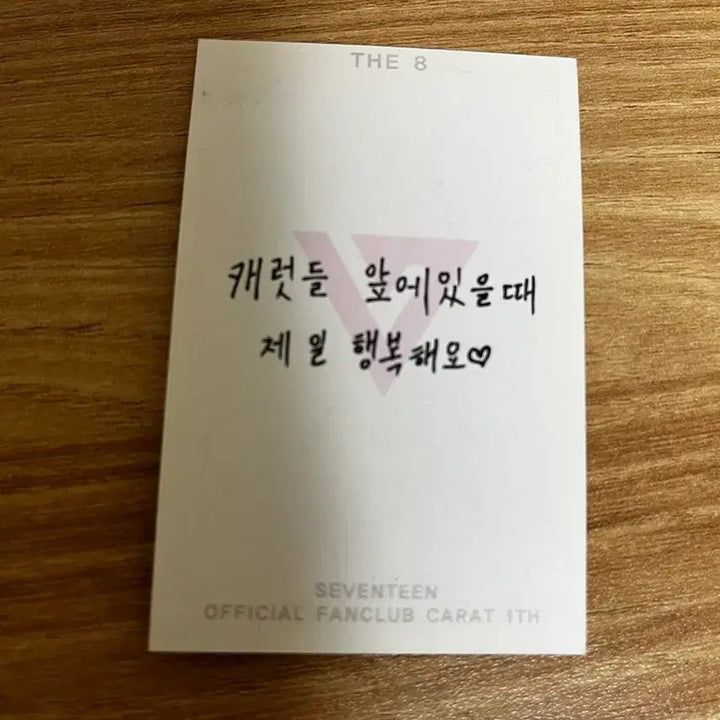 THE 8
캐럿들 앞에있을때
제일 행복해요♡
SEVENTEEN
OFFICIAL FANCLUB CARAT 1TH